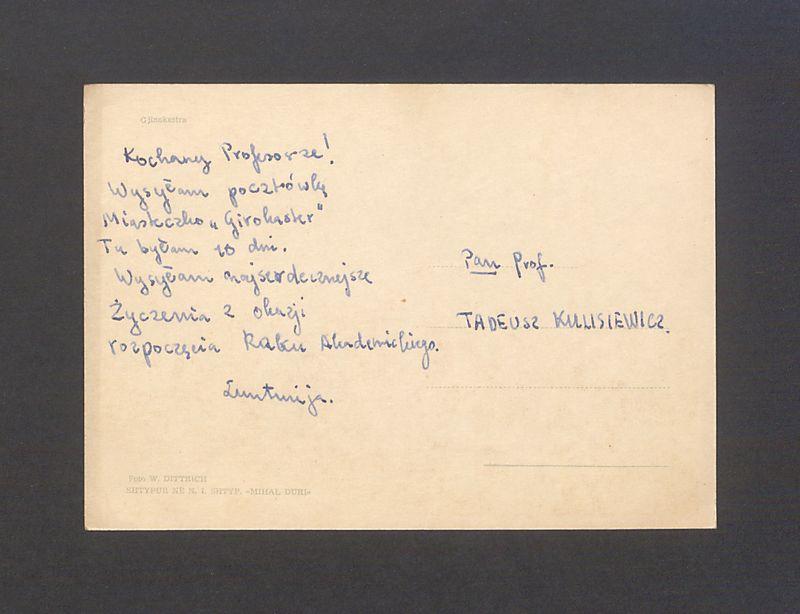 Gjinokastra
Kochany Profesorze!
Wysyłam pocztówkę
Miasteczko „Girokaster"
Tu byłam 10 dni.
Wysyłam najserdeczniejsze
Życzenia z okazji
rozpoczęcia Raku Akademickiego.
Pan Prof.
TADEUSZ KULISIEWICZ.
Foto W. DITTRICH
SHTYPUR NË N. I. SHTYP. «MIHAL DURI»